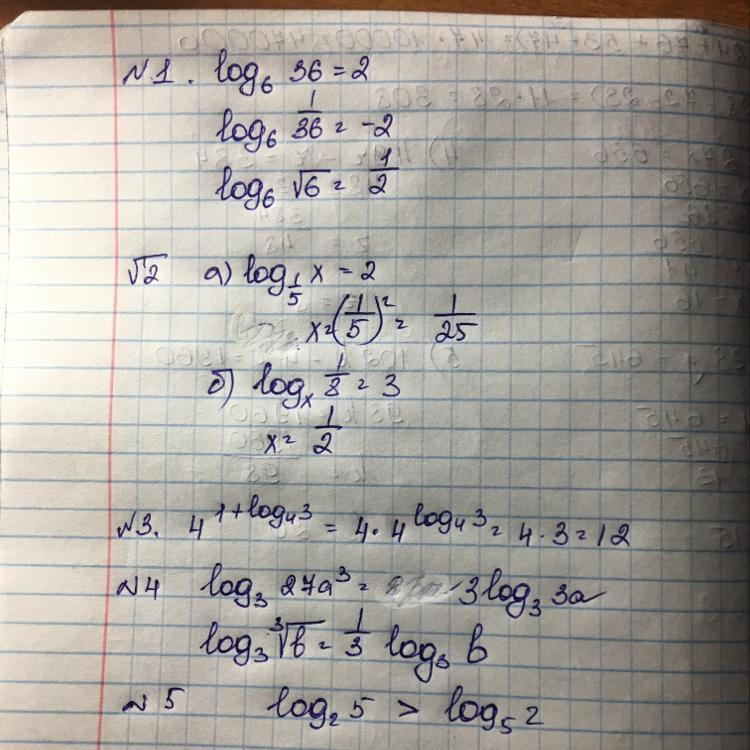 №1. log₆ 36 = 2
log₆ 1/36 = -2
log₆ √6 = 1/2
√2 а) log_{1/5} x = 2
x = (1/5)² = 1/25
б) logₓ 1/8 = 3
x = 1/2
№3. 4^{1+log₄3} = 4 · 4^{log₄3} = 4 · 3 = 12
№4 log₃ 27a³ = 3 log₃ 3a
log₃ ∛b = 1/3 log₃ b
№5 log₂ 5 > log₅ 2